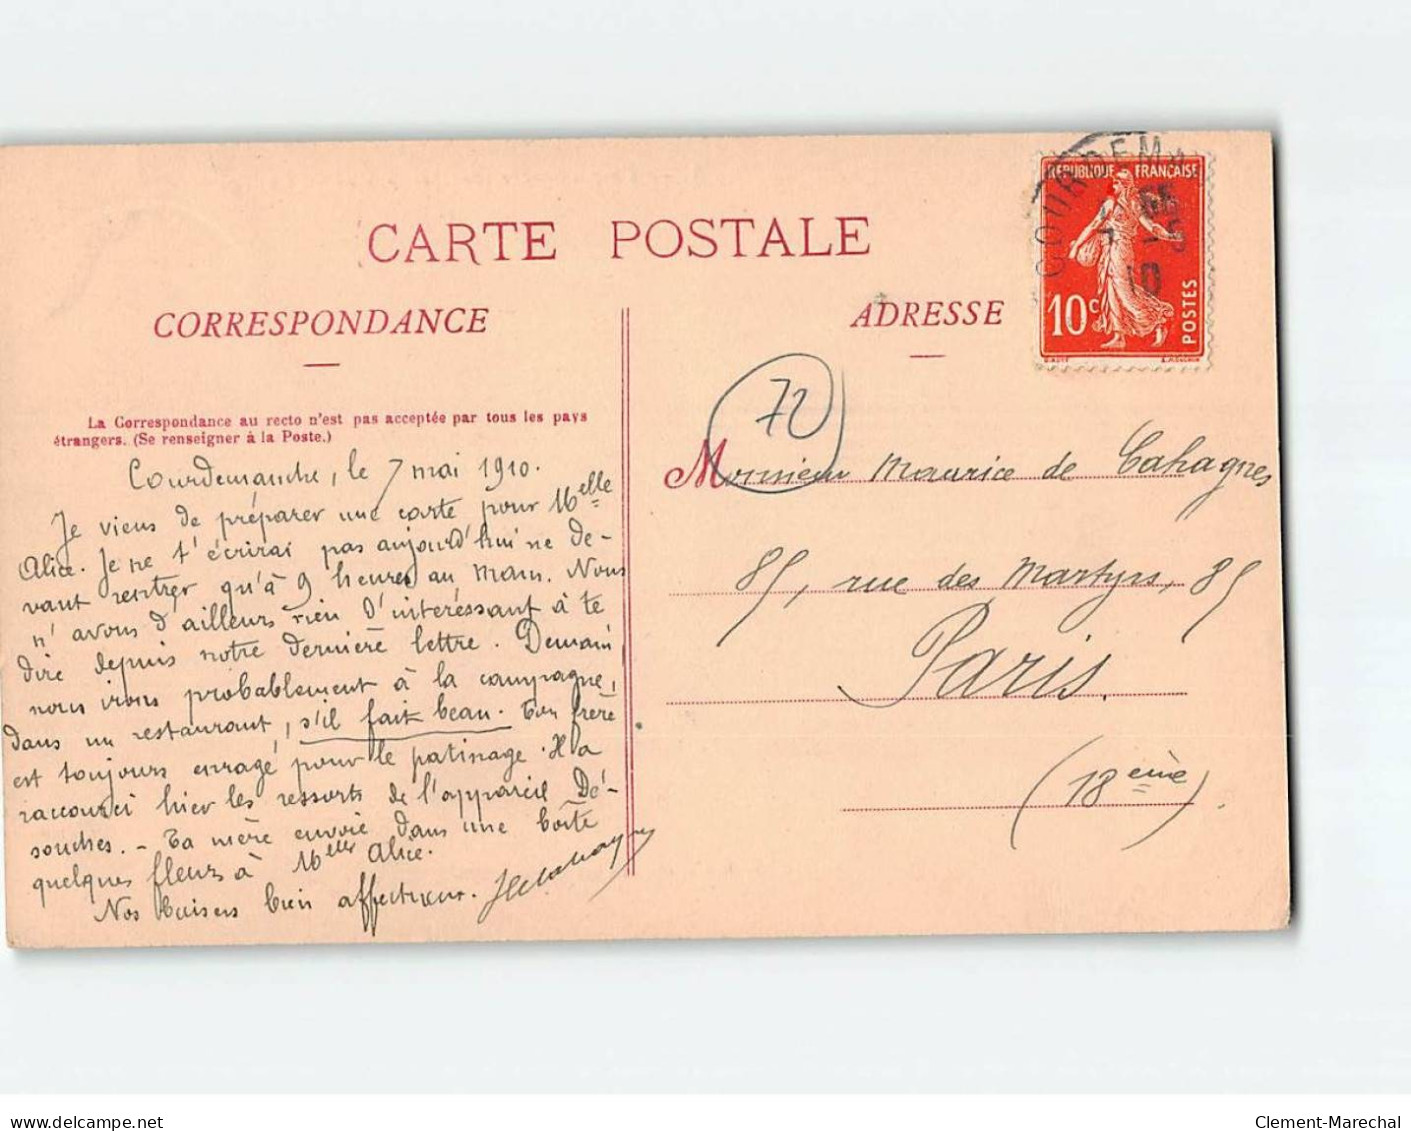 CARTE POSTALE
CORRESPONDANCE
ADRESSE
La Correspondance au recto n'est pas acceptée par tous les pays
étrangers. (Se renseigner à la Poste.)
Courdemanche, le 7 mai 1910.
Je viens de préparer une carte pour Melle
Alice. Je ne t'écrirai pas aujourd'hui ne de-
vant rentrer qu'à 9 heures au Mans. Nous
n'avons d'ailleurs rien d'intéressant à te
dire depuis notre dernière lettre. Demain
nous irons probablement à la campagne,
dans un restaurant, s'il fait beau. Ton frère
est toujours enragé pour le patinage. Il a
raccourci hier les ressorts de l'appareil Dé-
souches. - Ta mère envoie dans une boîte
quelques fleurs à Melle Alice.
Nos baisers bien affectueux.
72
Monsieur Maurice de Cahagnes
85, rue des Martyrs, 85
Paris.
(18ème).
COURDEM
7 -5
10
REPUBLIQUE FRANÇAISE
10c
POSTES
delcampe.net
Clement-Marechal